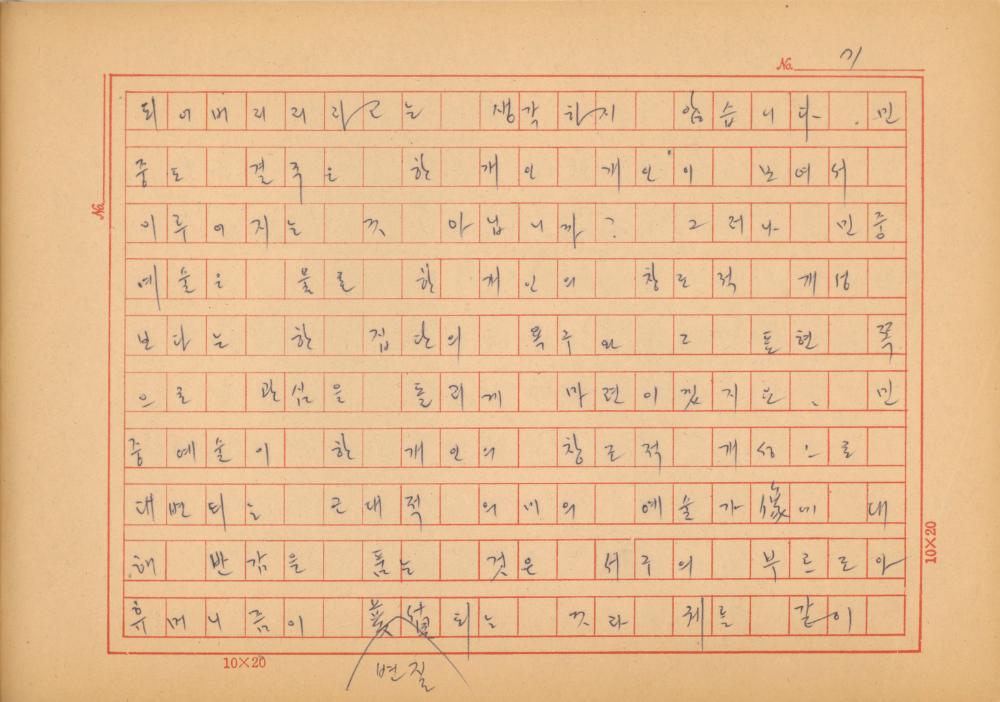 No. 71
되어버리리라고는 생각하지 않습니다. 민
중도 결국은 한 개인 개인이 모여서
이루어지는 것 아닙니까? 그러나 민중
예술은 물론 한 개인의 창조적 개성
보다는 한 집단의 욕구와 그 표현 쪽
으로 관심을 돌리게 마련이겠지요. 민
중예술이 한 개인의 창조적 개성으로
대변되는 근대적 의미의 예술가 에 대
해 반감을 품는 것은 서구의 부르조아
휴머니즘이 되는 것과 궤를 같이
변질
No.
10×20
10×20